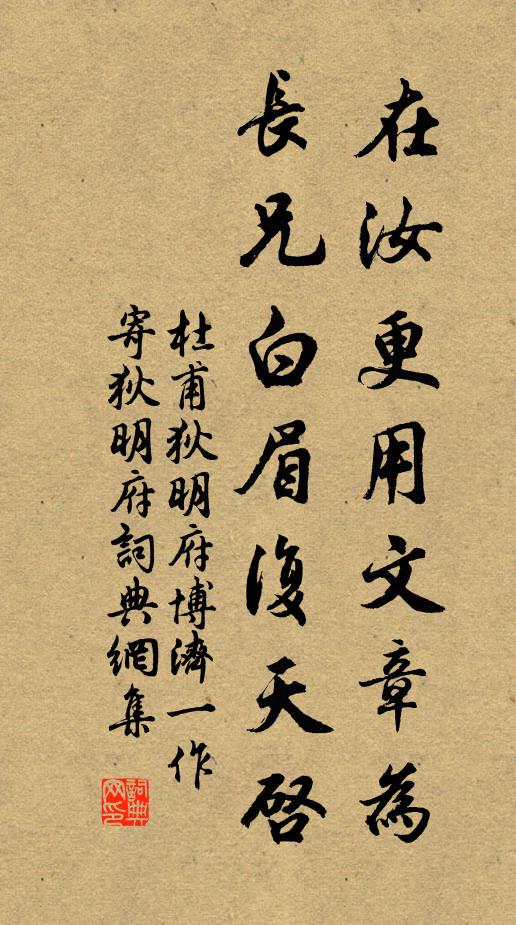 在汝更用文章為
長兄白眉復天啓
杜甫狄明府博濟一作
寄狄明府詞典網集
詞典网印